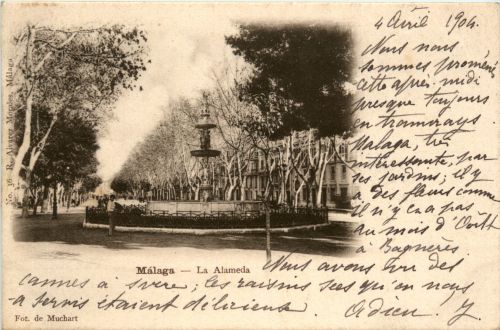 4 Avril 1904.
Nous nous
sommes promené
cette après-midi
presque toujours
en tramways.
Malaga, très
intéressente, par
ses jardins; il y
a des fleurs comme
il n'y en a pas
au mois d'Août
à Bagnères
Nous avons vu des
cannes à sucre; les raisins secs qu'on nous
a servis étaient délicieuse. Adieu. Y.
No. 36 Rafael Alvarez Morales, Málaga
Málaga — La Alameda
Fot. de Muchart